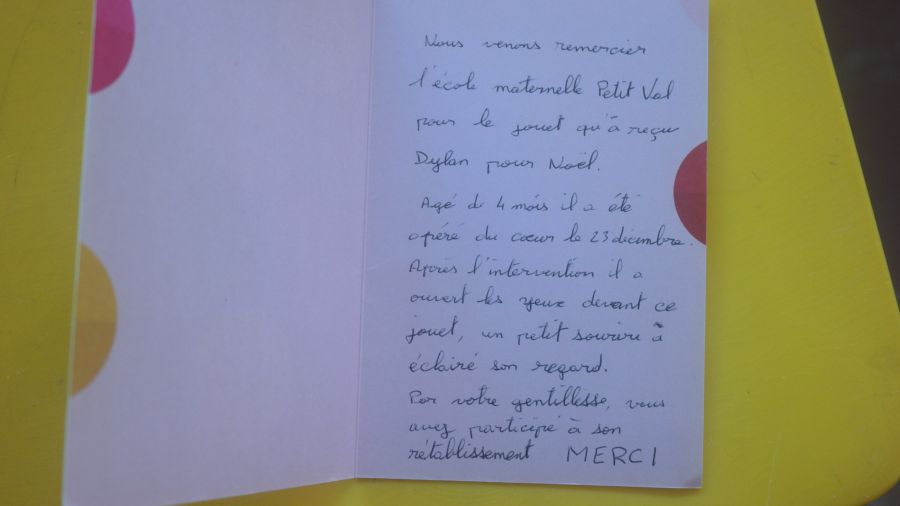 Nous venons remercier
l'école maternelle Petit Val
pour le jouet qu'à reçu
Dylan pour Noël.
Agé de 4 mois il a été
opéré du cœur le 23 décembre.
Après l'intervention il a
ouvert les yeux devant ce
jouet, un petit sourire à
éclairé son regard.
Par votre gentillesse, vous
avez participé à son
rétablissement MERCI